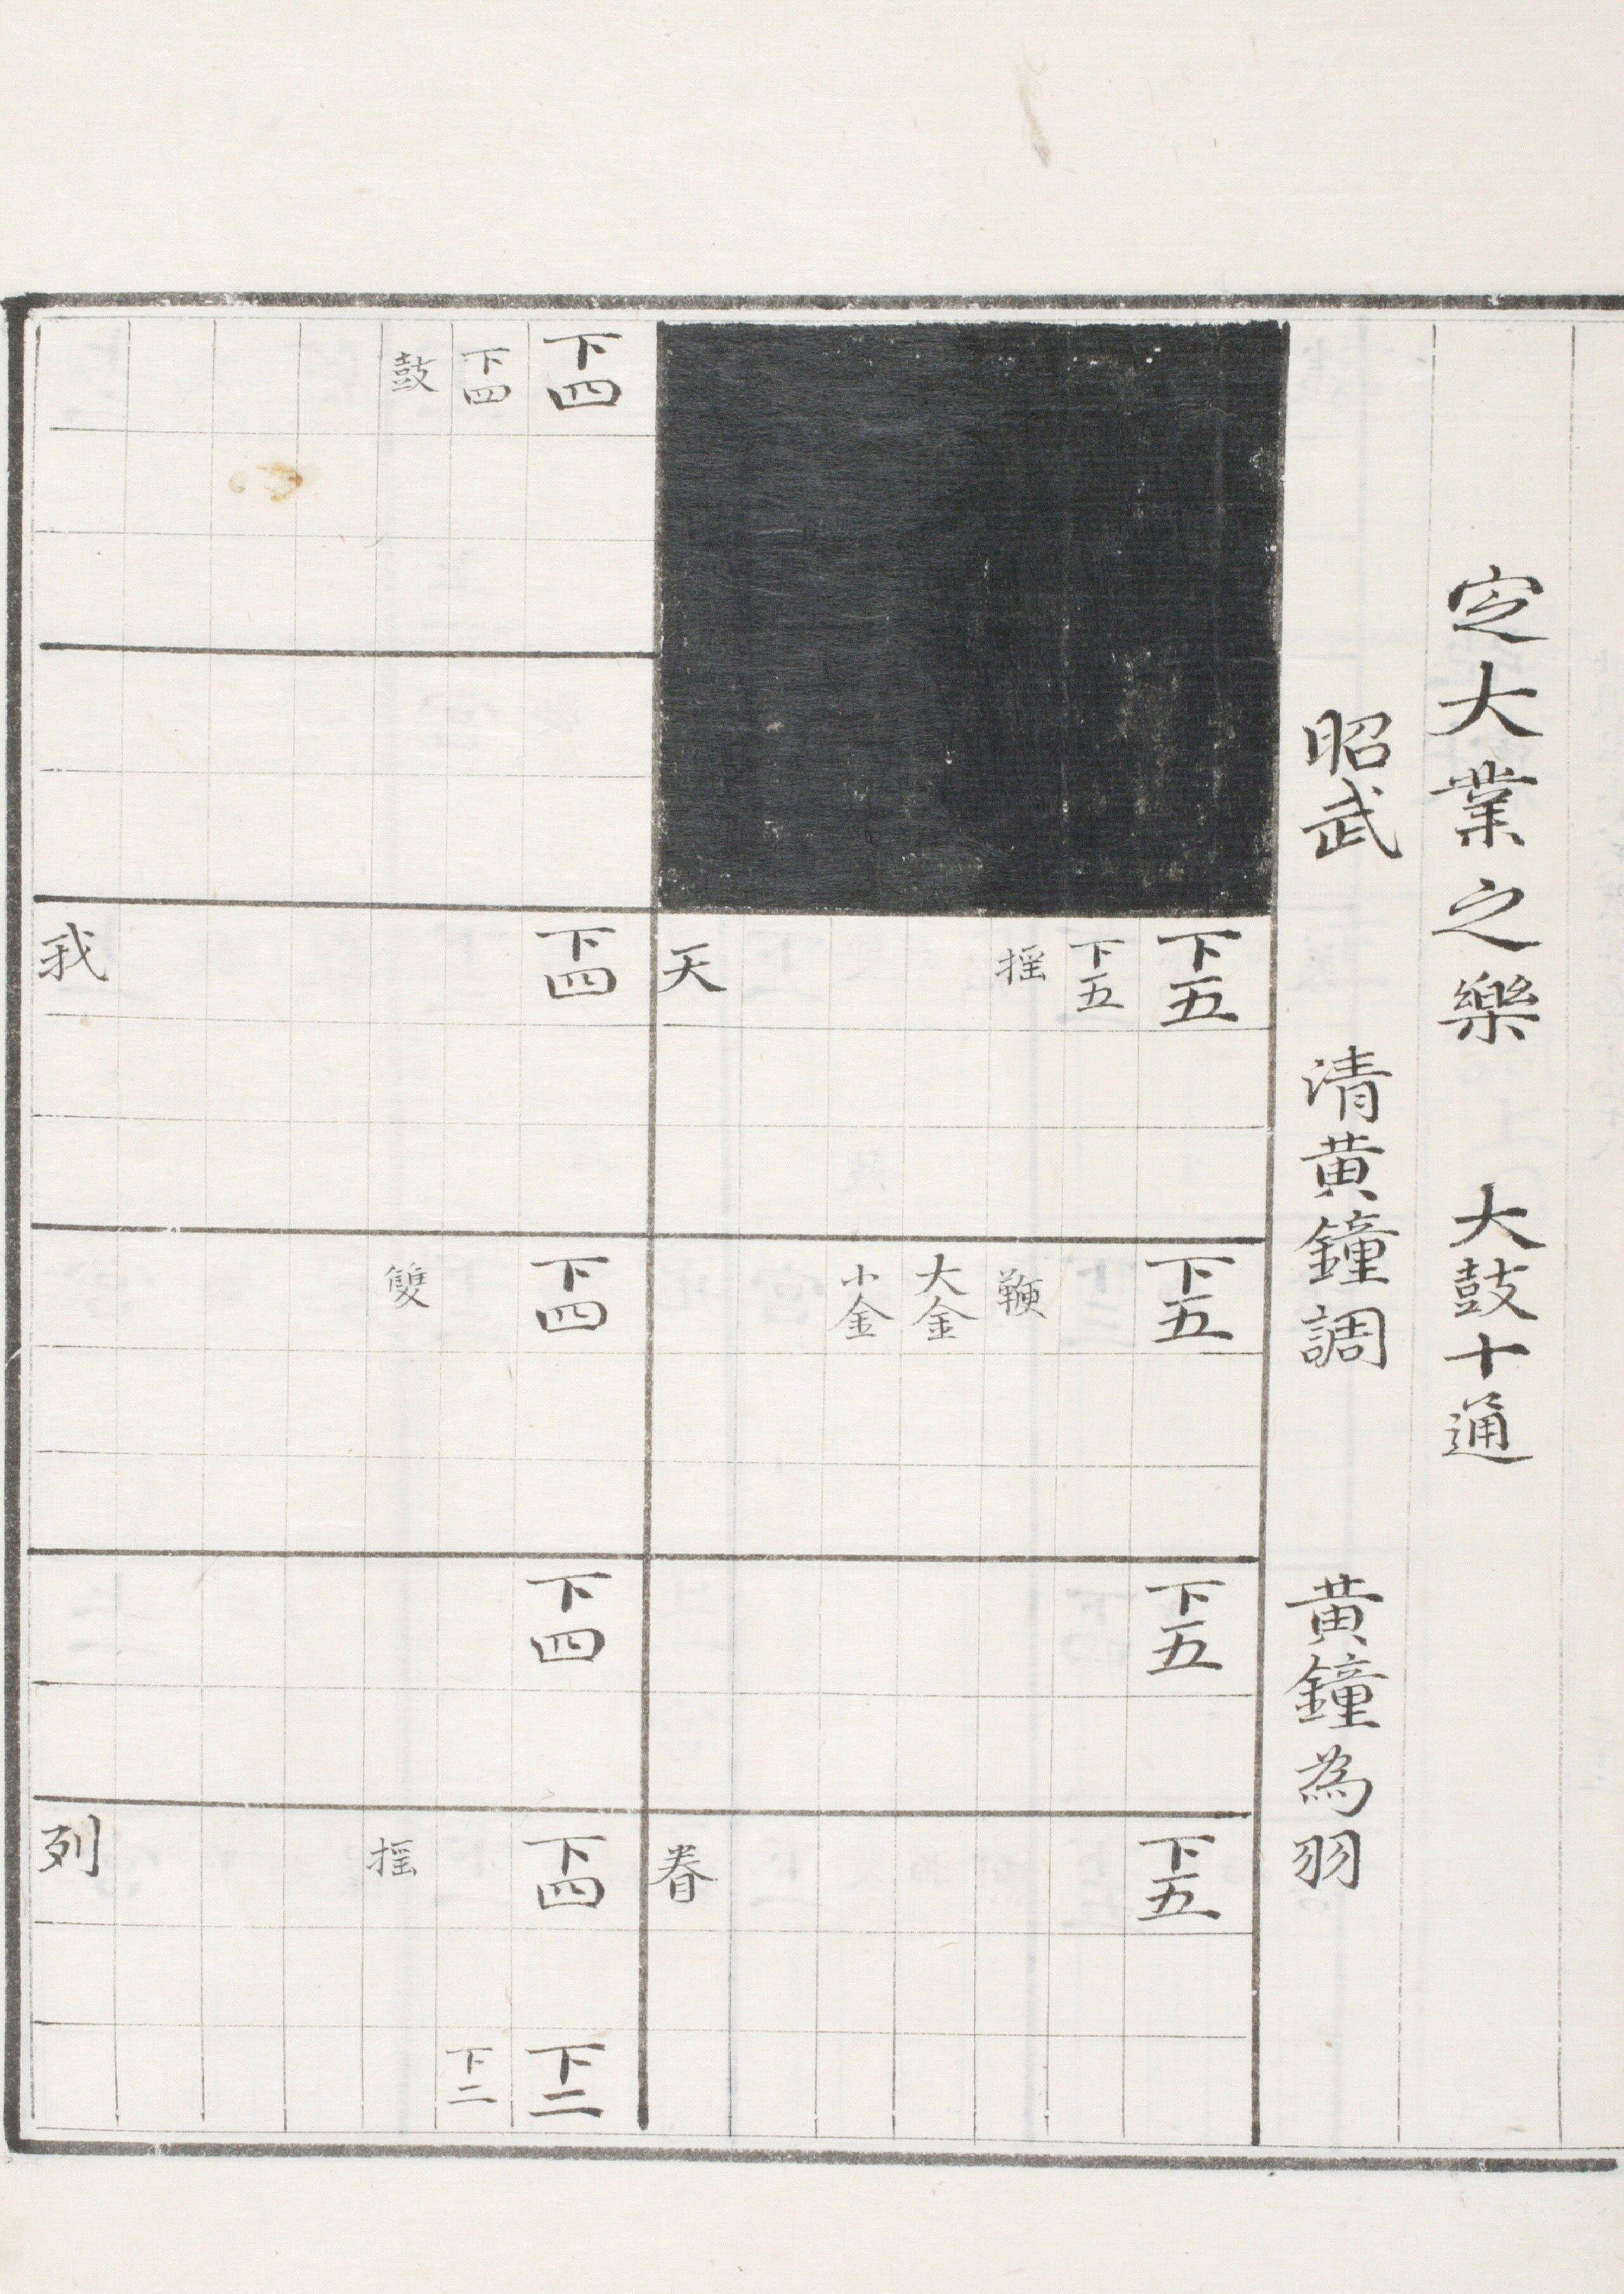 定大業之樂 大鼓十通
昭武 清黃鐘調 黃鐘為羽
下五 下五 下五 下五
下五
搖 鞭
大金
小金
天 眷
下四 下四 下四 下四 下四 下二
下四 下二
鼓 雙 搖
我 列